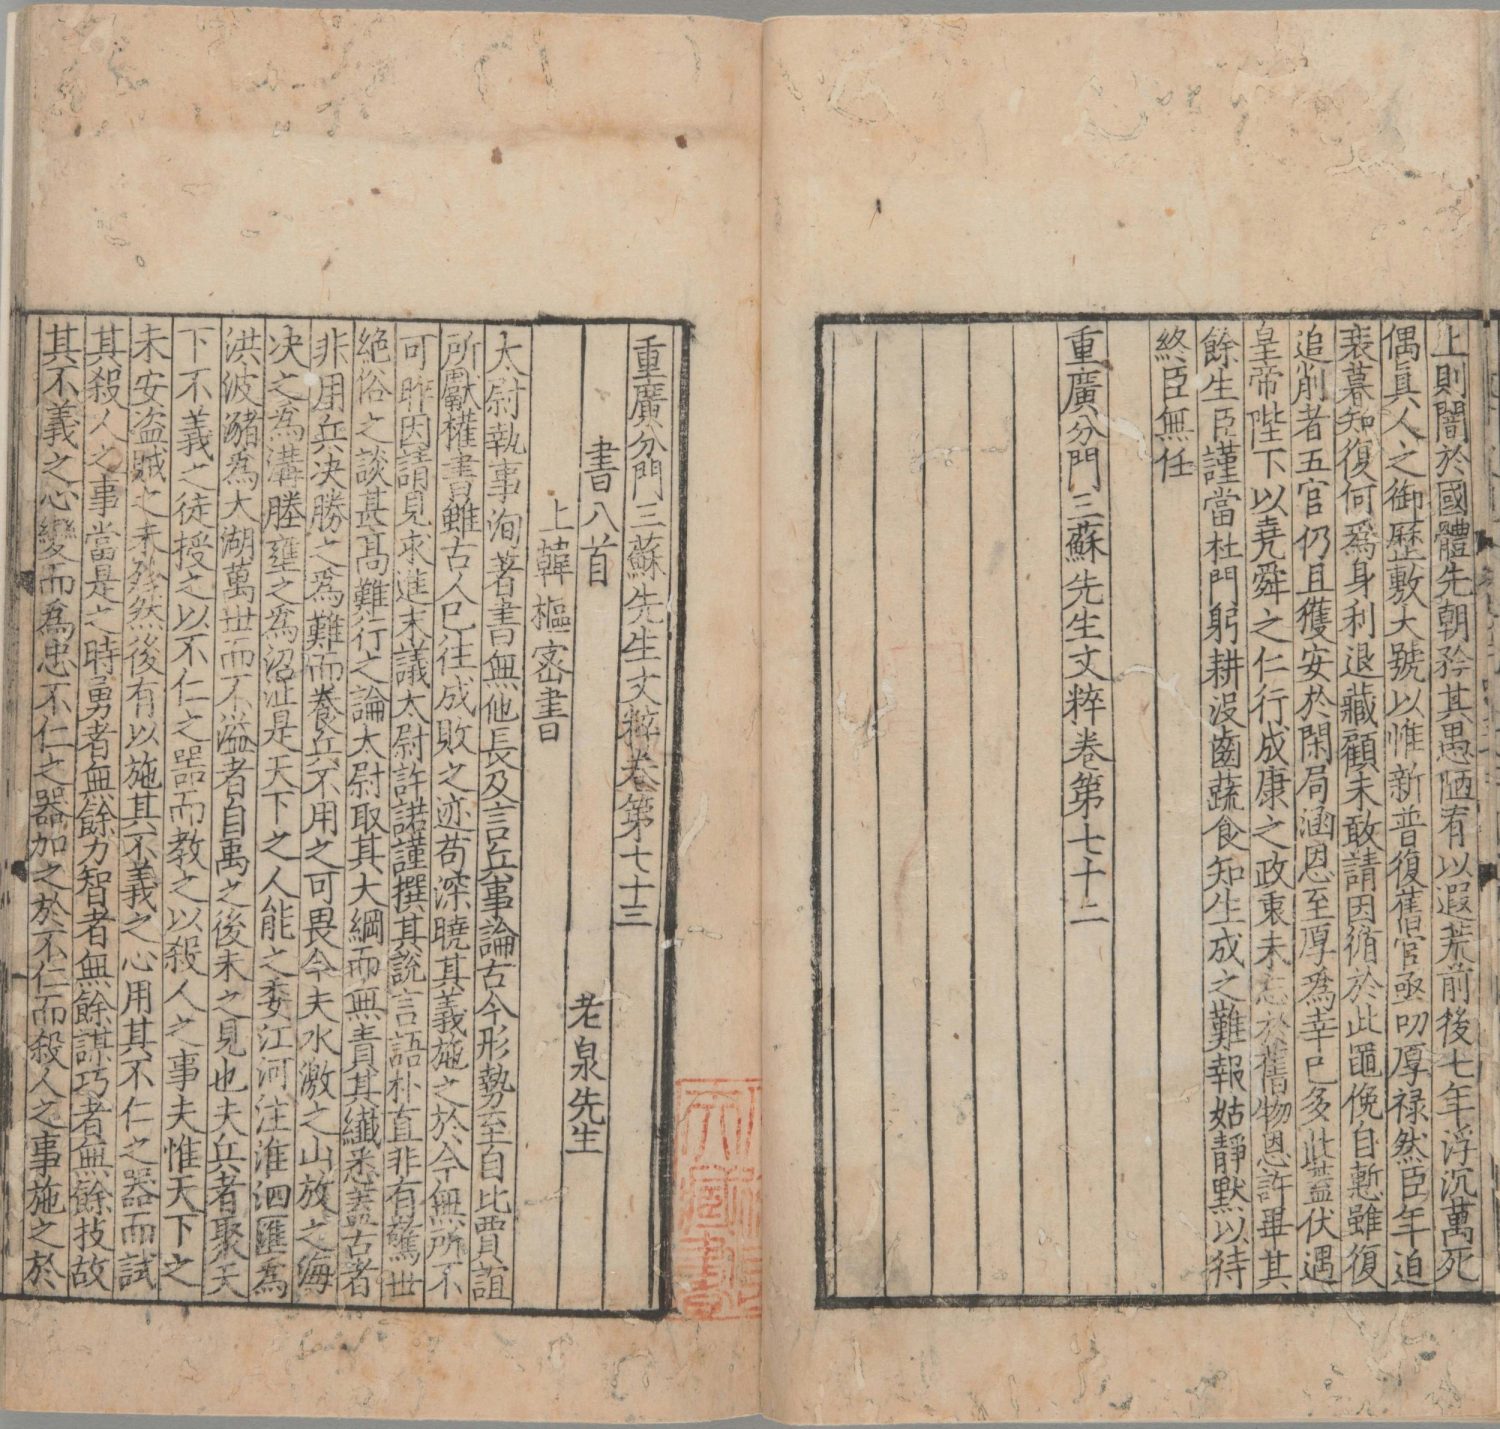 上則闇於國體先朝矜其愚陋有以遐荒前後七年浮沉萬死
偶真人之御歷敷大號以惟新普復舊官亟叨厚禄然臣年迫
衰暮知復何爲身利退藏顧未敢請因循於此黽俛自慙雖復
追削者五官仍且獲安於閑局涵恩至厚爲幸已多此蓋伏遇
皇帝陛下以堯舜之仁行成康之政東未忘於舊物恩許畢其
餘生臣謹當杜門躬耕没齒蔬食知生成之難報姑靜默以待
終臣無任
重廣分門三蘇先生文粹卷第七十二
重廣分門三蘇先生文粹卷第七十三
書八首 老泉先生
上韓樞密書
太尉執事洵著書無他長及言兵事論古今形勢至自比賈誼
所獻權書雖古人已往成敗之迹苟深曉其義施之於今無所不
可昨因請見求進末議太尉許諾謹撰其說言語朴直非有驚世
絶俗之談甚高難行之論太尉取其大綱而無責其纖悉蓋古者
非用兵決勝之爲難而養兵不用之可畏今夫水激之山放之海
决之爲溝塍壅之爲沼沚是天下之人能之委江河注淮泗匯爲
洪波豬爲大湖萬世而不溢者自禹之後未之見也夫兵者聚天
下不義之徒授之以不仁之器而教之以殺人之事夫惟天下之
未安盗賊之未殄然後有以施其不義之心用其不仁之器而試
其殺人之事當是之時勇者無餘力智者無餘謀巧者無餘技故
其不義之心變而爲忠不仁之器加之於不仁而殺人之事施之於